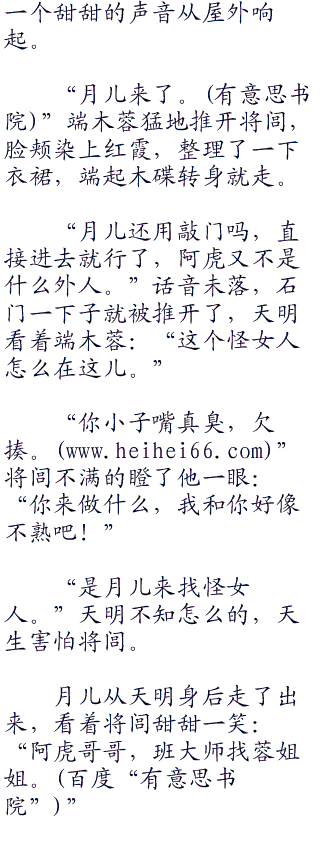 一个甜甜的声音从屋外响
起。
“月儿来了。(有意思书
院)”端木蓉猛地推开将闾，
脸颊染上红霞，整理了一下
衣裙，端起木碟转身就走。
“月儿还用敲门吗，直
接进去就行了，阿虎又不是
什么外人。”话音未落，石
门一下子就被推开了，天明
看着端木蓉：“这个怪女人
怎么在这儿。”
“你小子嘴真臭，欠
揍。(www.heihei66.com)”
将闾不满的瞪了他一眼：
“你来做什么，我和你好像
不熟吧！”
“是月儿来找怪女
人。”天明不知怎么的，天
生害怕将闾。
月儿从天明身后走了出
来，看着将闾甜甜一笑：
“阿虎哥哥，班大师找蓉姐
姐。(百度“有意思书
院”)”